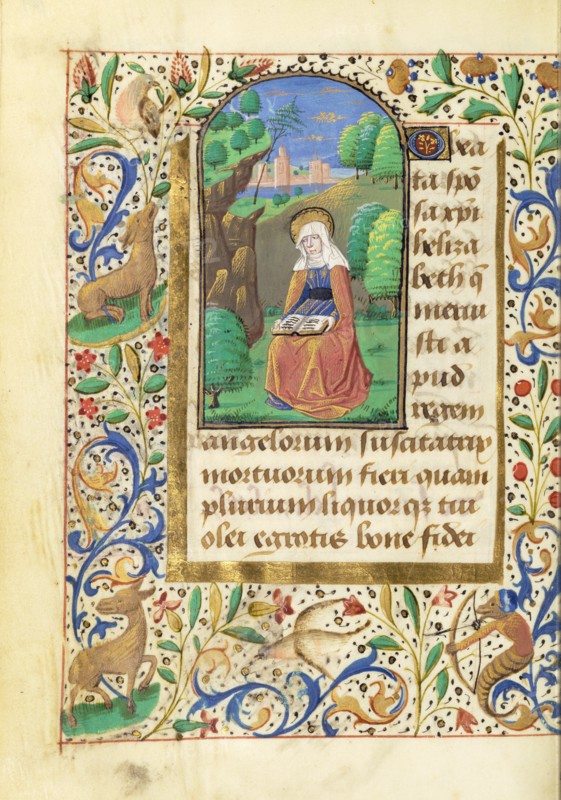 O bea
ta spō
sa xpi
heliza
beth q̄
merui
sti a
pud
regem
angelorum suscitatrix
mortuorum fieri quam
plurium liquor qꝫ tui
olei egrotis bone fidei